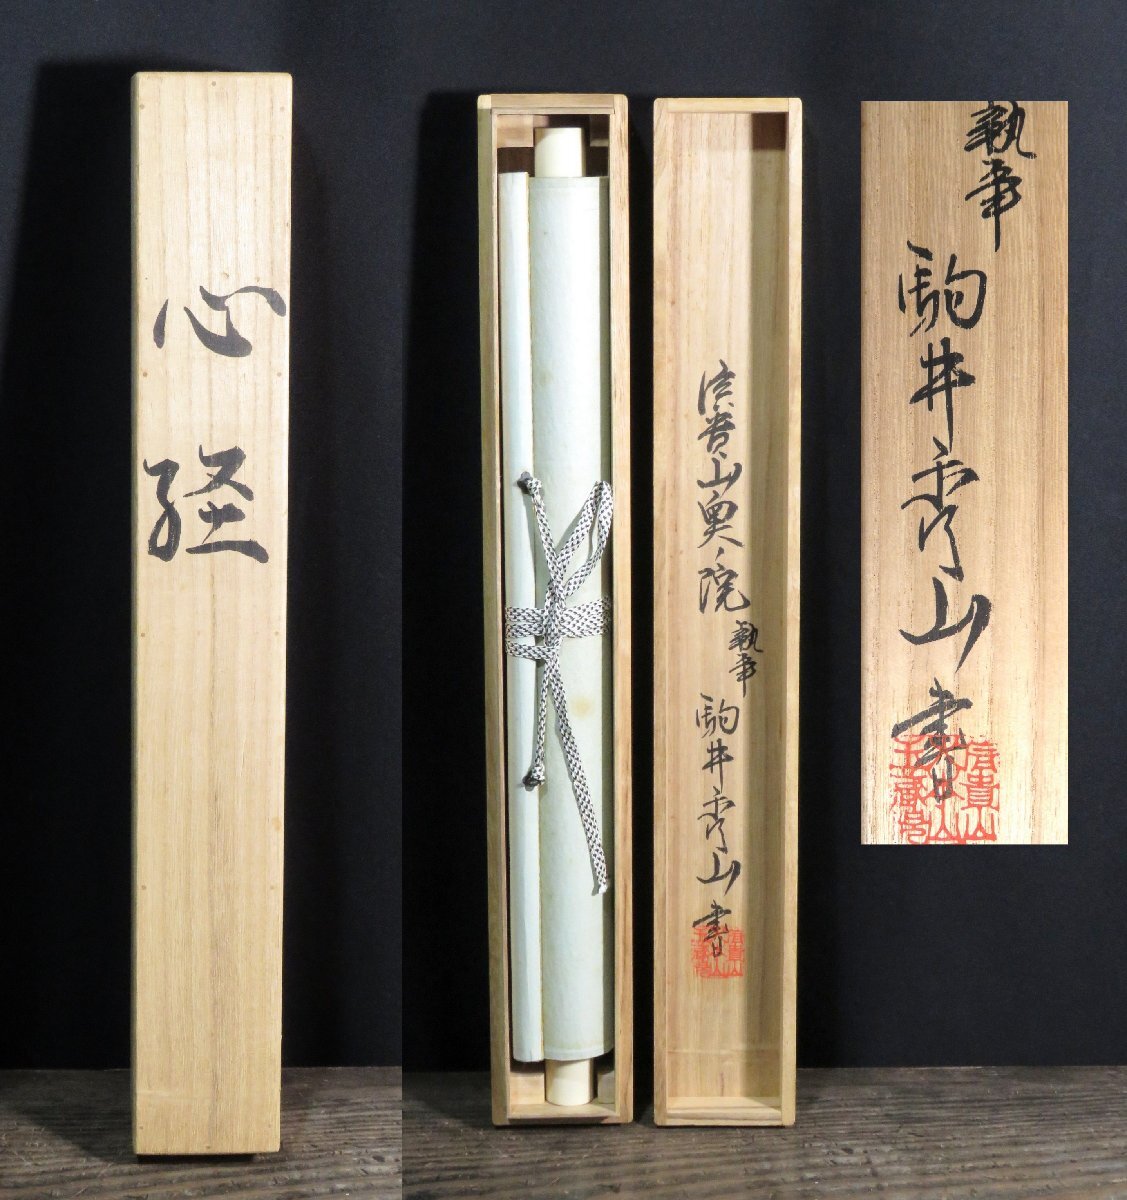 心経
信貴山奥ノ院
執事
駒井秀山書
執事
駒井秀山書
信貴山